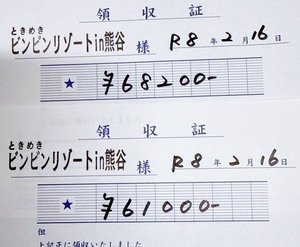 領収証
ときめき
ビンビンリゾートin熊谷 様 R8年2月16日
★ ¥68200-
領収証
ときめき
ビンビンリゾートin熊谷 様 R8年2月16日
★ ¥61000-
但
上記正に領収いたしました